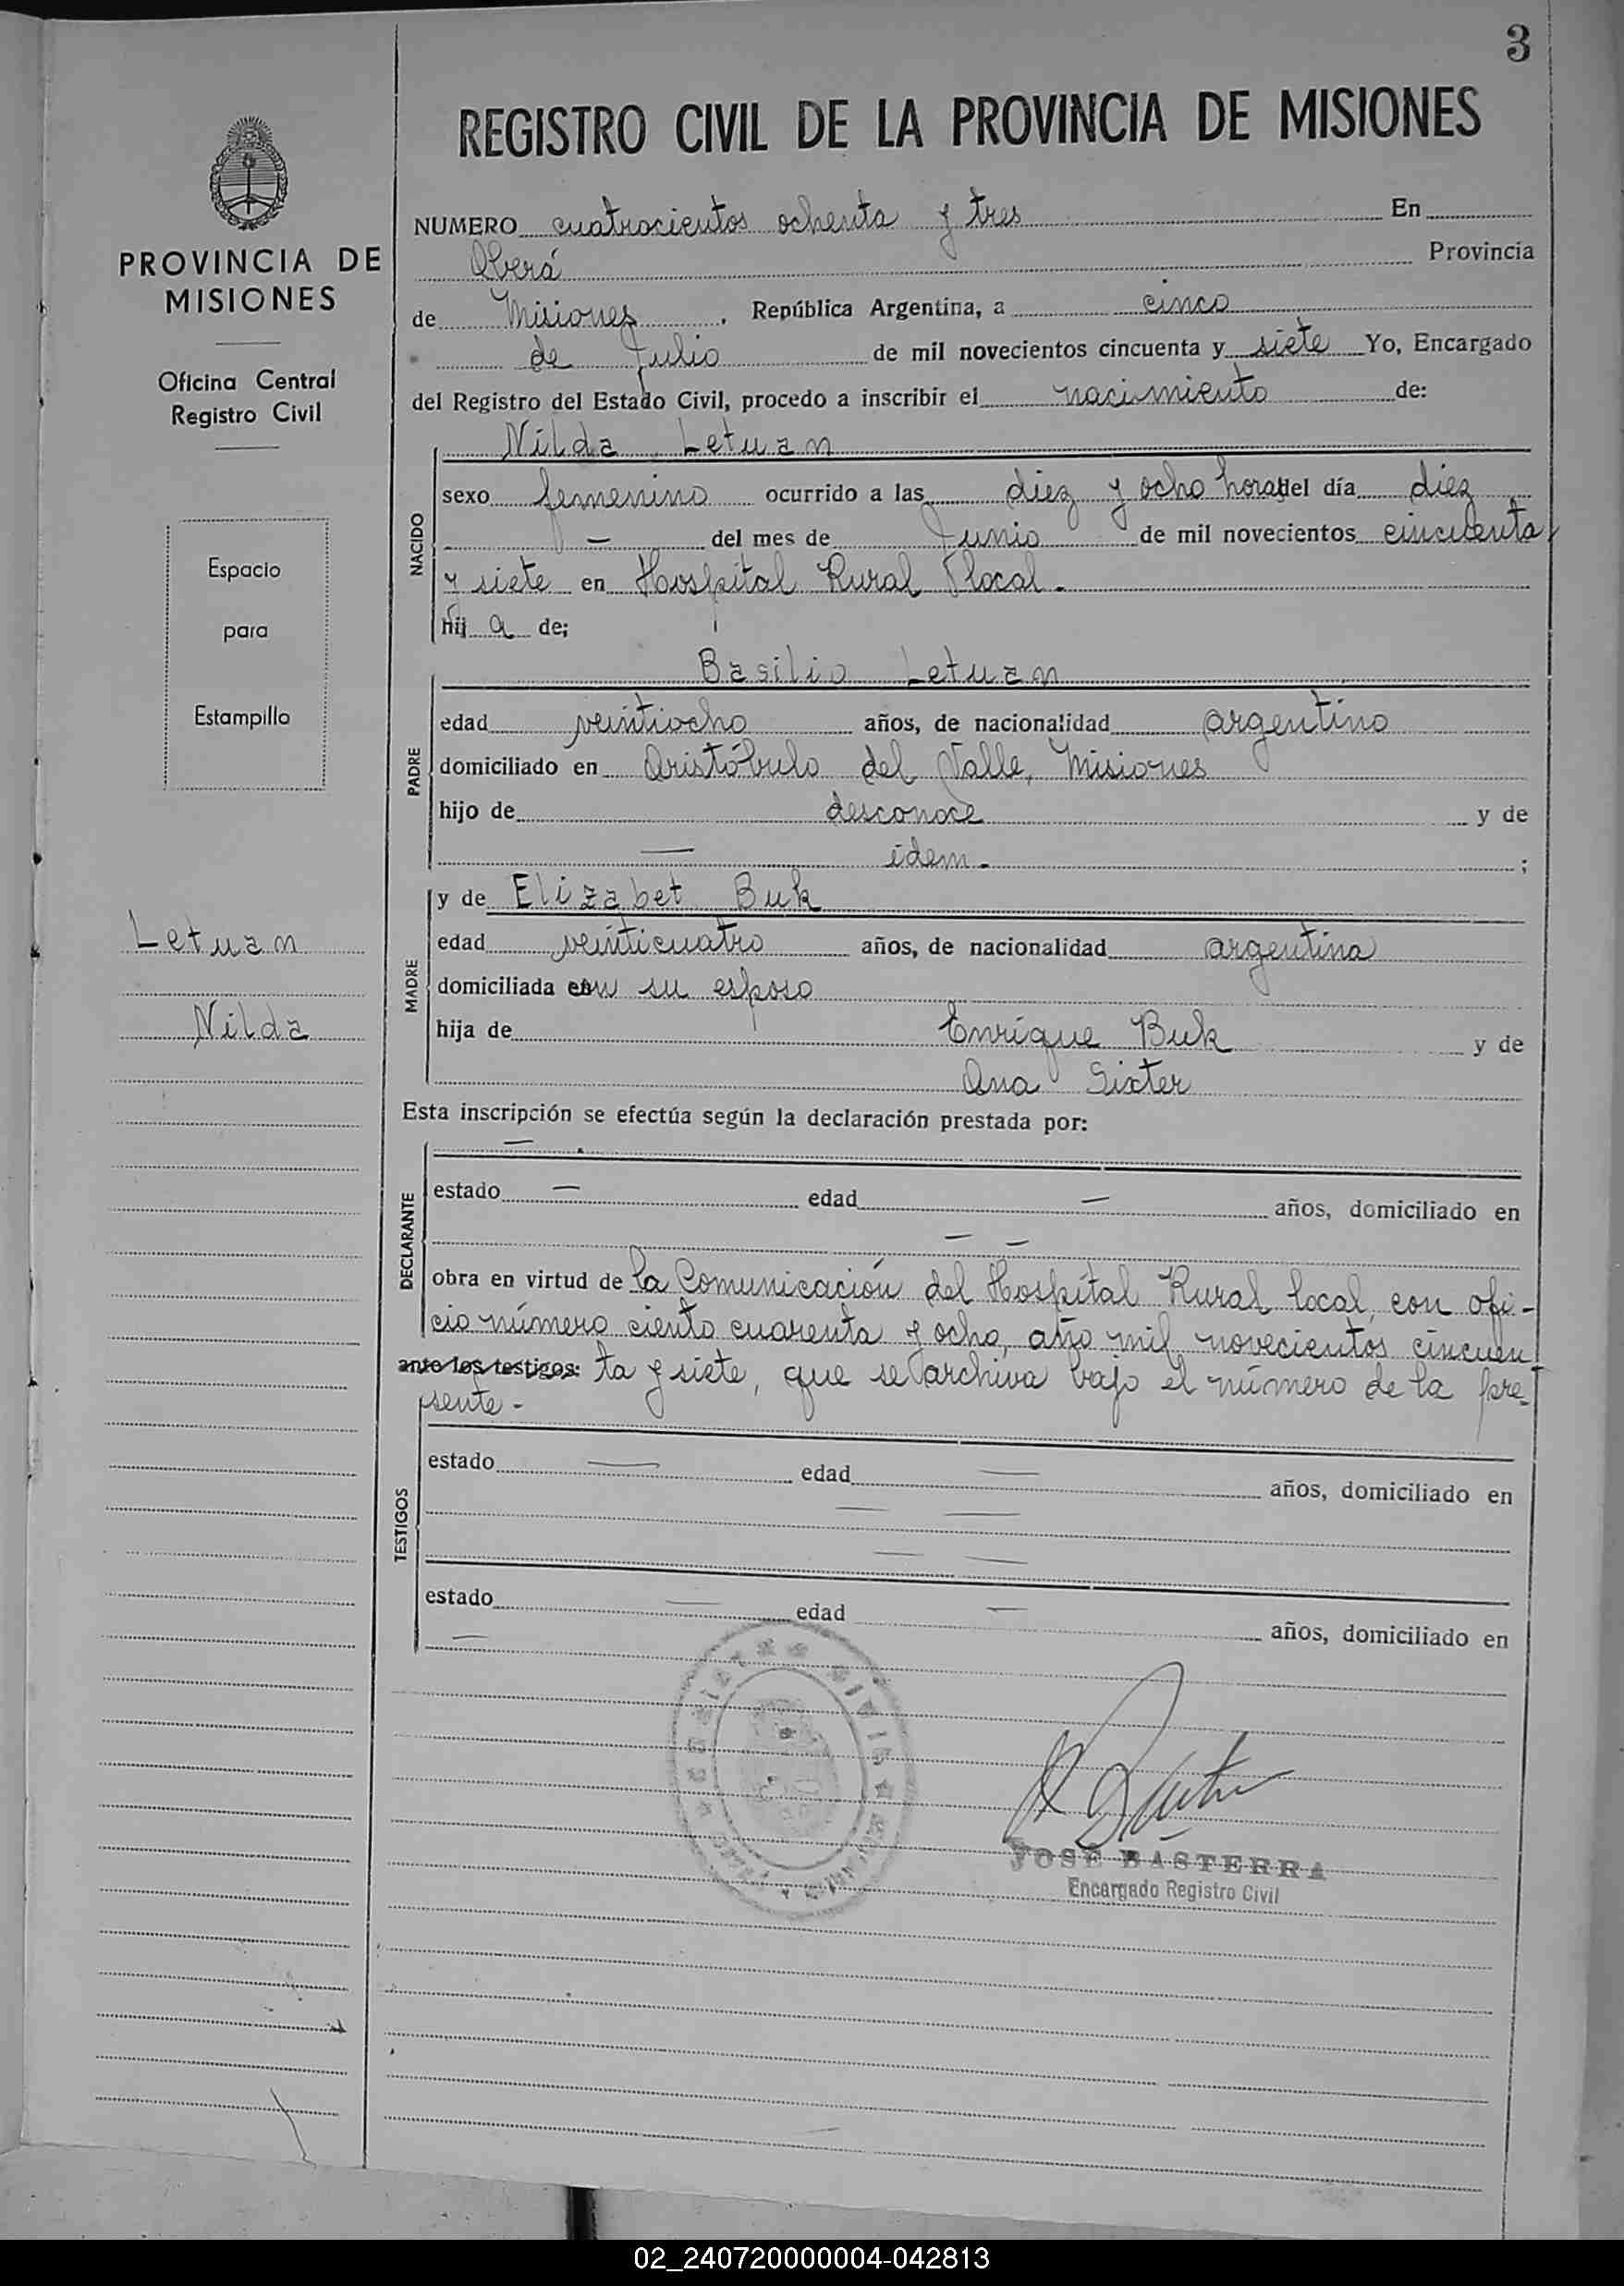 3
REGISTRO CIVIL DE LA PROVINCIA DE MISIONES
PROVINCIA DE
MISIONES
Oficina Central
Registro Civil
Espacio
para
Estampilla
Letuan
Nilda
NUMERO cuatrocientos ochenta y tres En
Oberá Provincia
de Misiones, República Argentina, a cinco
de Julio de mil novecientos cincuenta y siete Yo, Encargado
del Registro del Estado Civil, procedo a inscribir el nacimiento de:
Nilda Letuan
NACIDO
sexo femenino ocurrido a las diez y ocho horas del día diez
— del mes de Junio de mil novecientos cincuenta
y siete en Hospital Rural local.
hij a de;
Basilio Letuan
PADRE
edad veintiocho años, de nacionalidad argentino
domiciliado en Aristóbulo del Valle, Misiones
hijo de desconoce y de
— idem. ;
y de Elizabet Buk
MADRE
edad veinticuatro años, de nacionalidad argentina
domiciliada con su esposo
hija de Enrique Buk y de
Ana Sixter
Esta inscripción se efectúa según la declaración prestada por:
— .
DECLARANTE
estado — edad — años, domiciliado en
— —
obra en virtud de la Comunicación del Hospital Rural local, con ofi-
cio número ciento cuarenta y ocho, año mil novecientos cincuen
ante los testigos: ta y siete, que se archiva bajo el número de la pre-
sente -
TESTIGOS
estado — edad — años, domiciliado en
— —
— —
estado — edad — años, domiciliado en
—
JOSÉ BASTERRA
Encargado Registro Civil
02_240720000004-042813